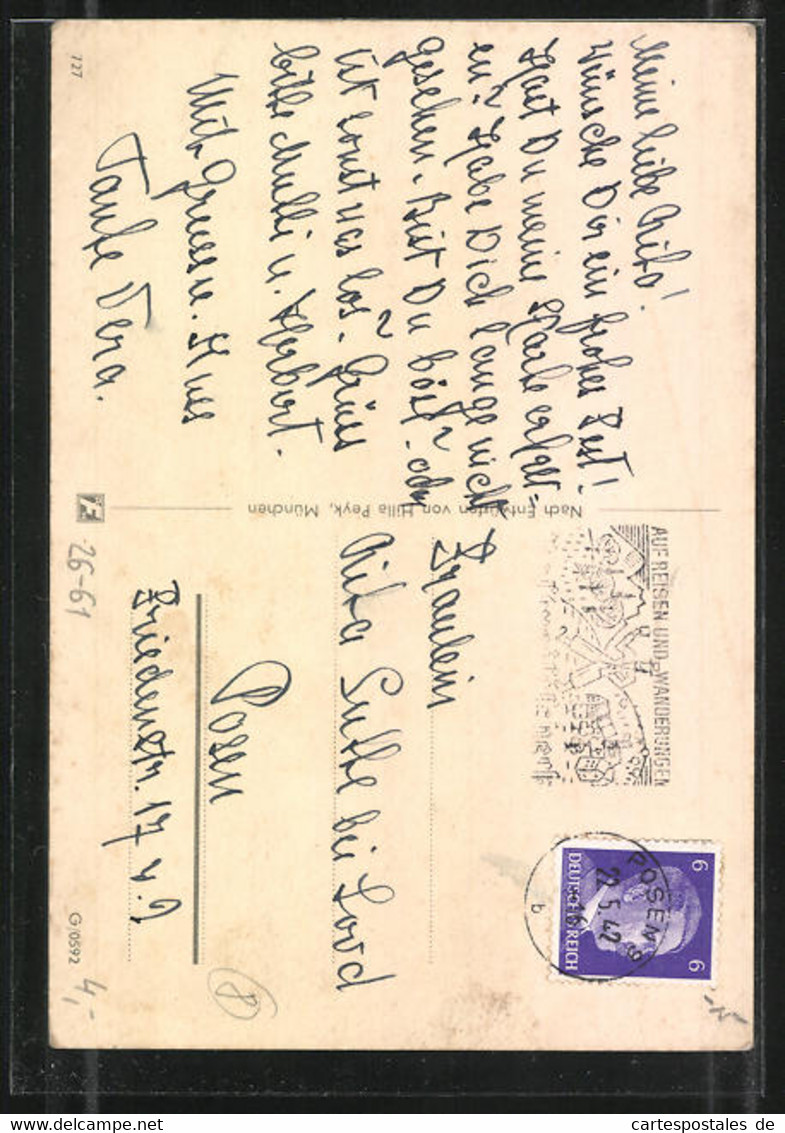 Meine liebe Rita!
Wünsche Dir ein frohes Fest!
Hast Du meine Karte erhalt=
en? Habe Dich lange nicht
gesehen. Bist Du böse? oder
ist sonst was los? Grüss
bitte Mutti u. Herbert.
Mit Gruss u. Kuss
Tante Vera.
127
Nach Entwürfen von Hilla Peyk, München
AUF REISEN UND WANDERUNGEN
6 6
DEUTSCHES REICH
POSEN 9
22.5.42
16
b
Fräulein
Rita bei
Posen
Friedenstr. 17
26-61
G/0592
4,-
8
cartespostales de
www.delcampe.net